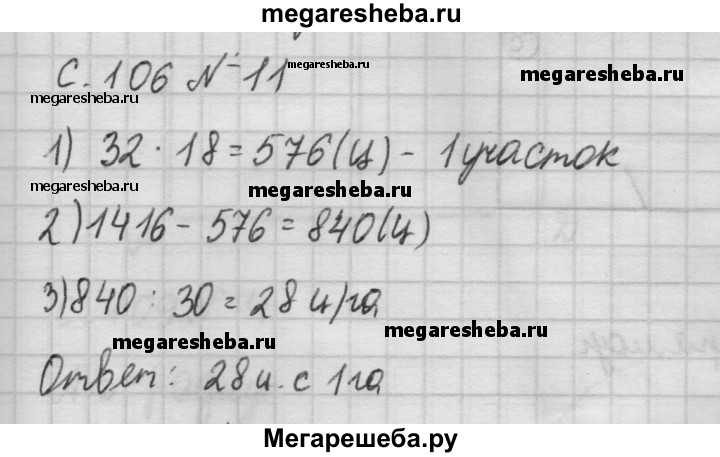 megaresheba.ru
с. 106 № 11
megaresheba.ru
megaresheba.ru
megaresheba.ru
1) 32 · 18 = 576 (ц) - 1 участок
megaresheba.ru
megaresheba.ru
2) 1416 - 576 = 840 (ц)
3) 840 : 30 = 28 ц/га
megaresheba.ru
megaresheba.ru
Ответ: 28 ц. с 1 га
Мегарешеба.ру